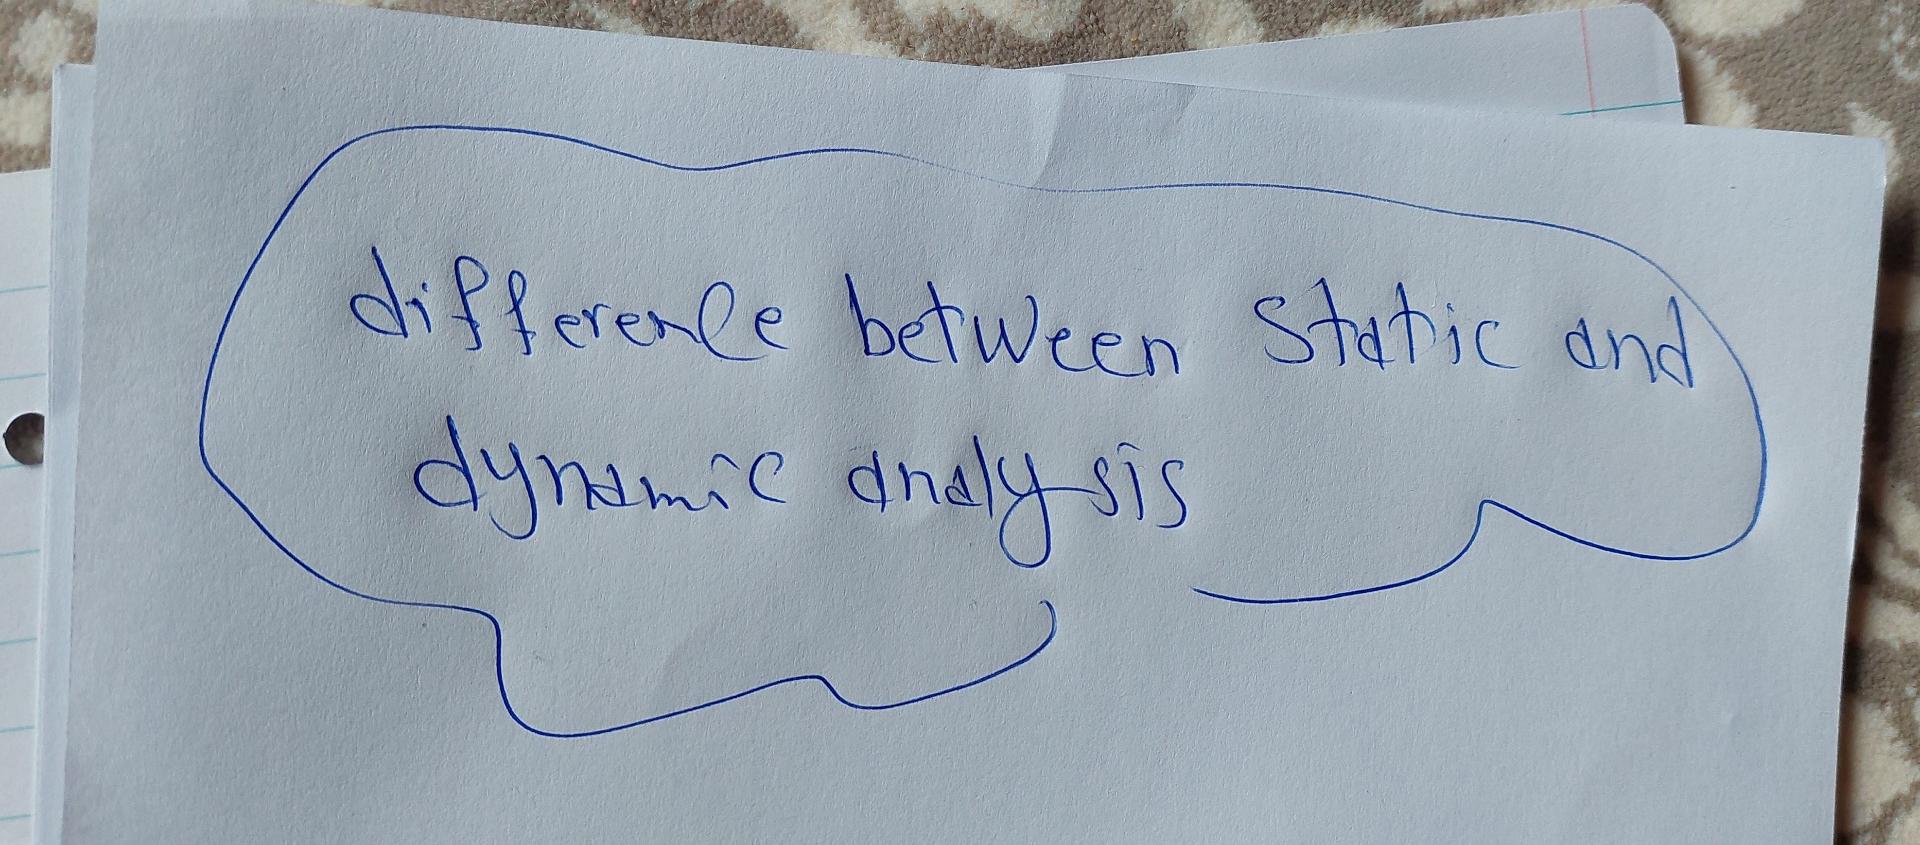 difference between static and
dynamic analysis